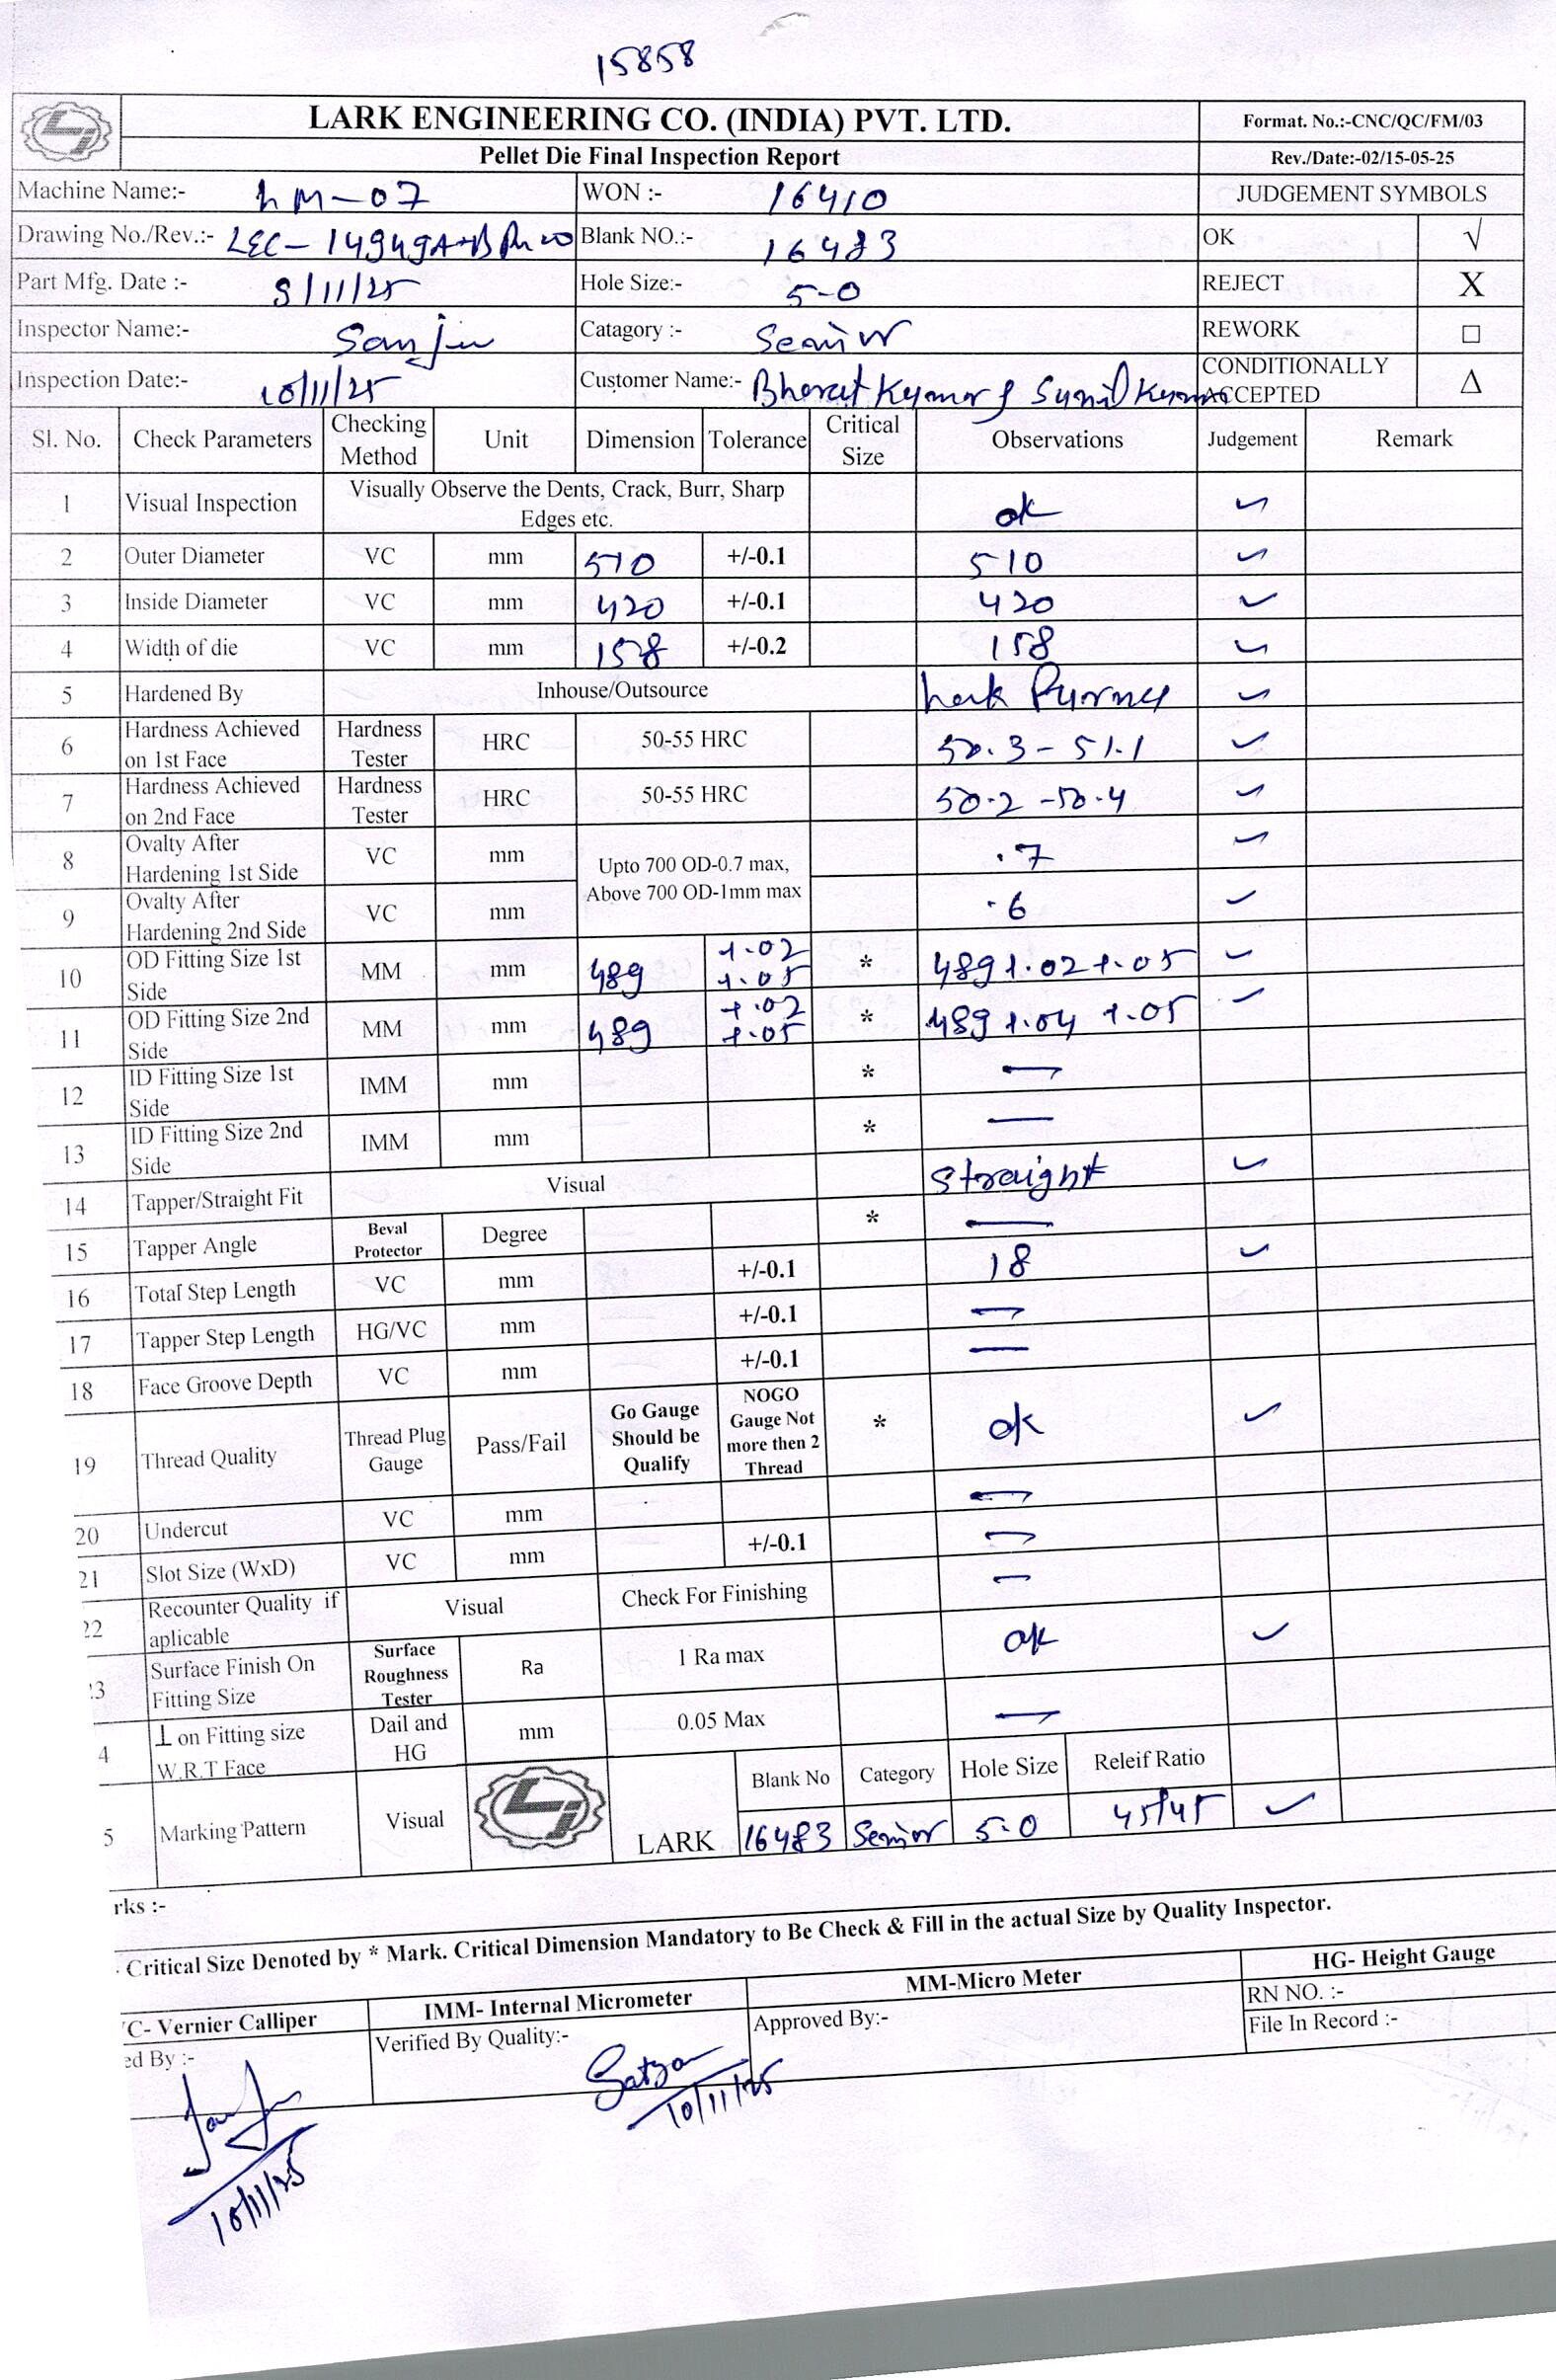 15858
LARK ENGINEERING CO. (INDIA) PVT. LTD.
Format. No.:-CNC/QC/FM/03
Pellet Die Final Inspection Report
Rev./Date:-02/15-05-25
Machine Name:- hM-07 WON :- 16410 JUDGEMENT SYMBOLS
Drawing No./Rev.:- LEC-14949A+B Blank NO.:- 16483 OK √
Part Mfg. Date :- 8/11/25 Hole Size:- 5-0 REJECT X
Inspector Name:- Sanju Catagory :- Senior REWORK □
Inspection Date:- 10/11/25 Customer Name:- Bharat Kumar & Sunil Kumar CONDITIONALLY ACCEPTED Δ
Sl. No. Check Parameters Checking Method Unit Dimension Tolerance Critical Size Observations Judgement Remark
1 Visual Inspection Visually Observe the Dents, Crack, Burr, Sharp Edges etc. ok ✓
2 Outer Diameter VC mm 510 +/-0.1 510 ✓
3 Inside Diameter VC mm 420 +/-0.1 420 ✓
4 Width of die VC mm 158 +/-0.2 158 ✓
5 Hardened By Inhouse/Outsource ✓
6 Hardness Achieved on 1st Face Hardness Tester HRC 50-55 HRC 50.3-51.1 ✓
7 Hardness Achieved on 2nd Face Hardness Tester HRC 50-55 HRC 50.2-50.4 ✓
8 Ovalty After Hardening 1st Side VC mm Upto 700 OD-0.7 max, Above 700 OD-1mm max .7 ✓
9 Ovalty After Hardening 2nd Side VC mm .6 ✓
10 OD Fitting Size 1st Side MM mm 489 +.02 +.05 * 489 +.02 +.05 ✓
11 OD Fitting Size 2nd Side MM mm 489 +.02 +.05 * 489 +.04 +.05 ✓
12 ID Fitting Size 1st Side IMM mm * —
13 ID Fitting Size 2nd Side IMM mm * —
14 Tapper/Straight Fit Visual Straight ✓
15 Tapper Angle Beval Protector Degree * —
16 Total Step Length VC mm +/-0.1 18 ✓
17 Tapper Step Length HG/VC mm +/-0.1 —
18 Face Groove Depth VC mm +/-0.1 —
19 Thread Quality Thread Plug Gauge Pass/Fail Go Gauge Should be Qualify NOGO Gauge Not more then 2 Thread * ok ✓
20 Undercut VC mm —
21 Slot Size (WxD) VC mm +/-0.1 —
22 Recounter Quality if aplicable Visual Check For Finishing —
3 Surface Finish On Fitting Size Surface Roughness Tester Ra 1 Ra max ok ✓
4 ⊥ on Fitting size W.R.T Face Dail and HG mm 0.05 Max —
5 Marking Pattern Visual LARK Blank No Category Hole Size Releif Ratio
16483 Senior 5.0 45/45 ✓
rks :-
Critical Size Denoted by * Mark. Critical Dimension Mandatory to Be Check & Fill in the actual Size by Quality Inspector.
C- Vernier Calliper IMM- Internal Micrometer MM-Micro Meter HG- Height Gauge
ed By :- Verified By Quality:- Approved By:- RN NO. :-
File In Record :-
Sanju 10/11/25
Satya 10/11/25